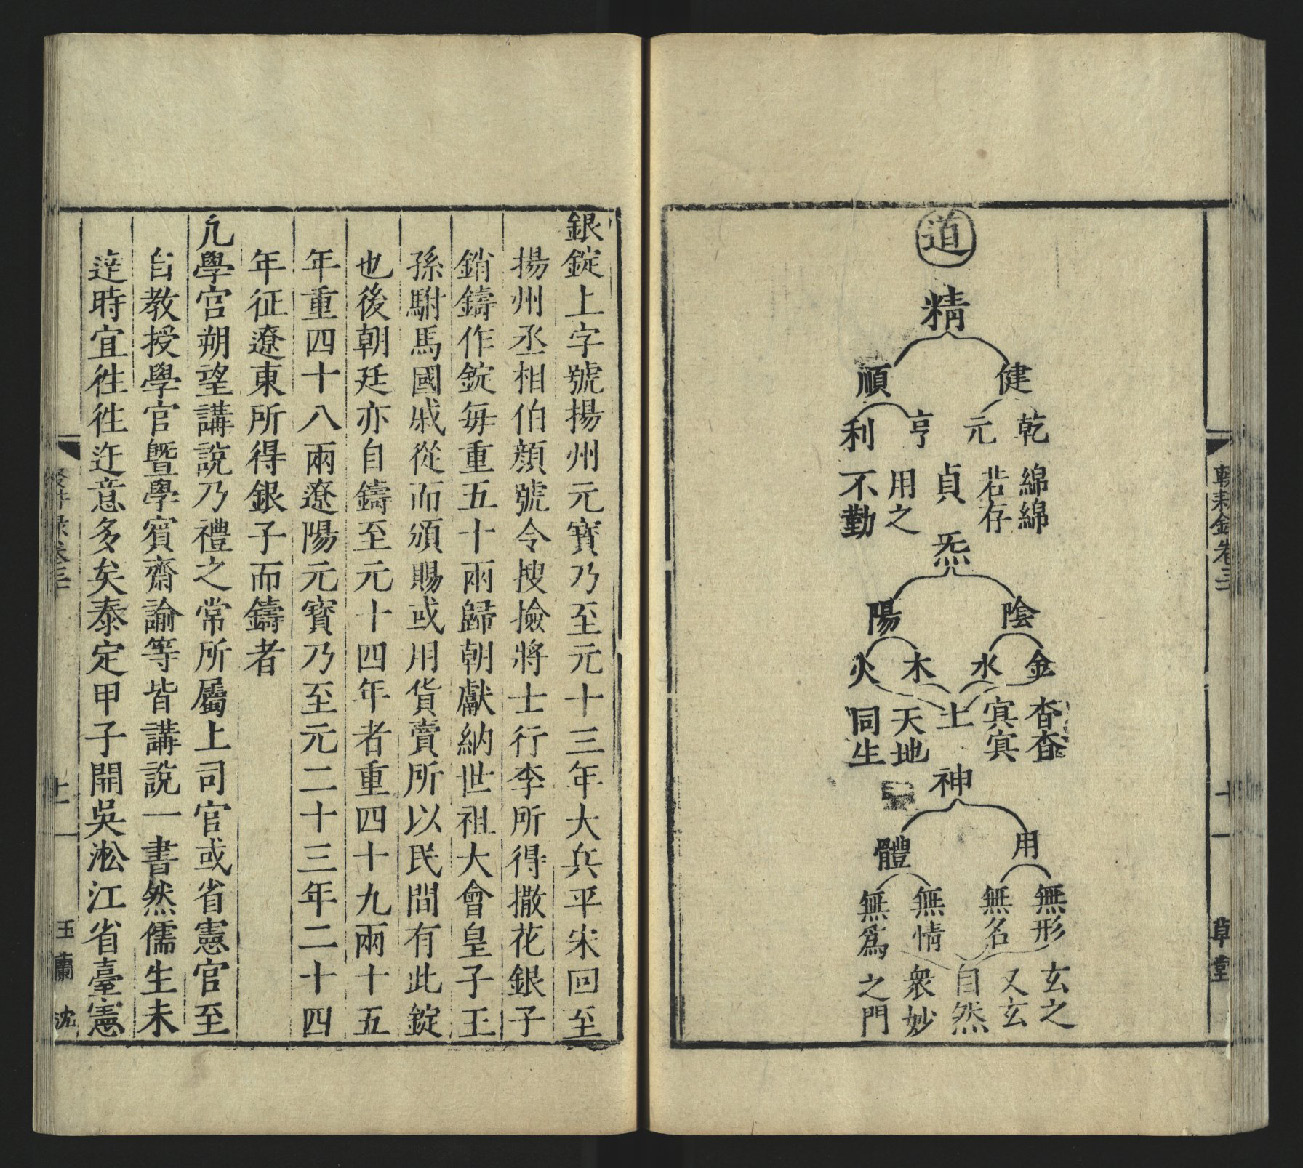 道
精
健
順
乾
元
亨
利
綿綿
若存
貞
用之
不勤
炁
陰
陽
金
水
木
火
杳杳
冥冥
土
天地
同生
神
用
體
無形
無名
無情
無爲
玄之
又玄
自然
衆妙
之門
輟耕錄卷三
十一
草堂
銀錠上字號揚州元寳乃至元十三年大兵平宋回至
揚州丞相伯顔號令搜撿將士行李所得撒花銀子
銷鑄作錠每重五十兩歸朝獻納世祖大會皇子王
孫駙馬國戚從而頒賜或用貨賣所以民間有此錠
也後朝廷亦自鑄至元十四年者重四十九兩十五
年重四十八兩遼陽元寳乃至元二十三年二十四
年征遼東所得銀子而鑄者
凡學官朔望講說乃禮之常所屬上司官或省憲官至
自教授學官曁學賓齋諭等皆講說一書然儒生未
達時宜徃徃迕意多矣泰定甲子開吳淞江省臺憲
玉蘭